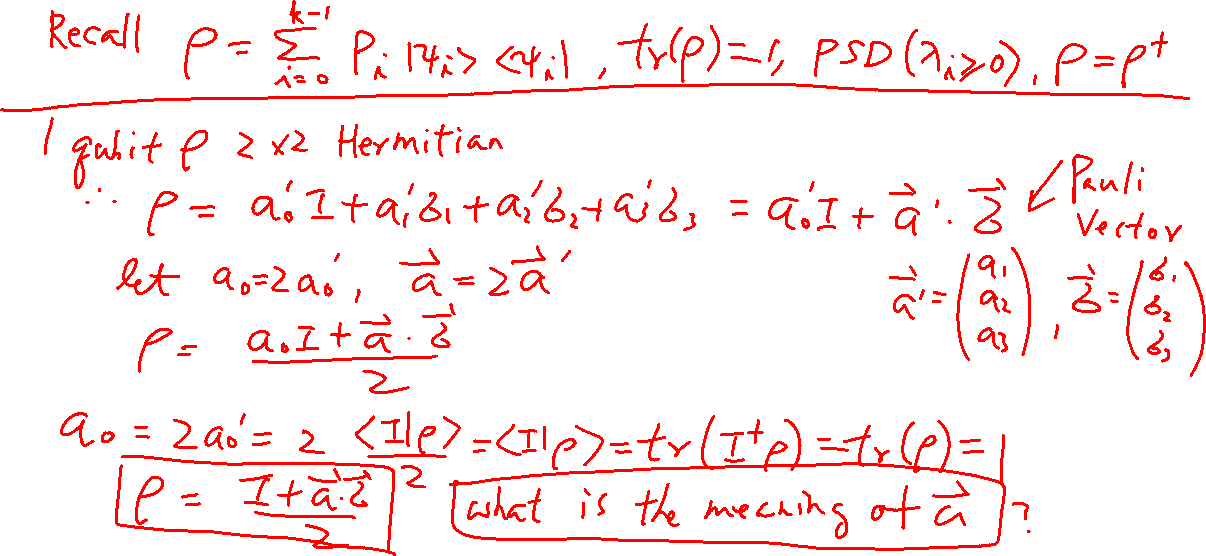 Recall ρ = Σ_{i=0}^{k-1} P_i |ψ_i> <ψ_i| , tr(ρ)=1, PSD(λ_i≥0), ρ=ρ†
1 qubit ρ 2×2 Hermitian
∴ ρ = a₀'I + a₁'σ₁ + a₂'σ₂ + a₃'σ₃ = a₀'I + a⃗'·σ⃗ ↙ Pauli Vector
let a₀=2a₀', a⃗ = 2a⃗' a⃗' = (a₁ a₂ a₃), σ⃗ = (σ₁ σ₂ σ₃)
ρ = (a₀I + a⃗·σ⃗)/2
a₀ = 2a₀' = 2 <I|ρ>/2 = <I|ρ> = tr(I†ρ) = tr(ρ) = 1
ρ = (I + a⃗·σ⃗)/2 what is the meaning of a⃗ ?